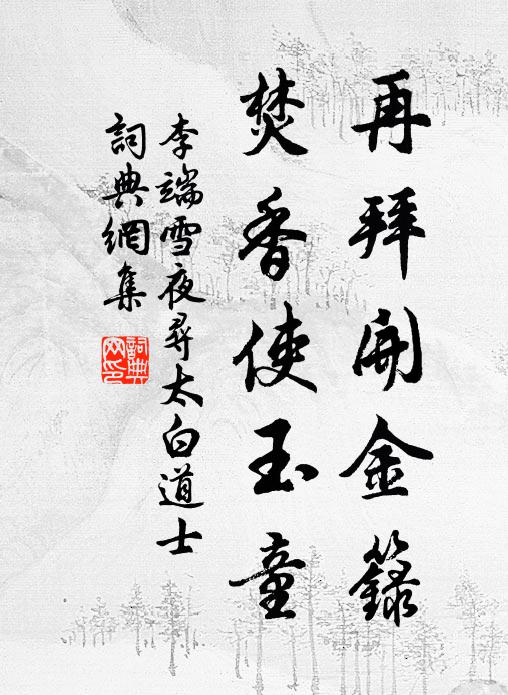 再拜開金籙
焚香使玉童
李端雪夜尋太白道士
詞典網集
詞典網印